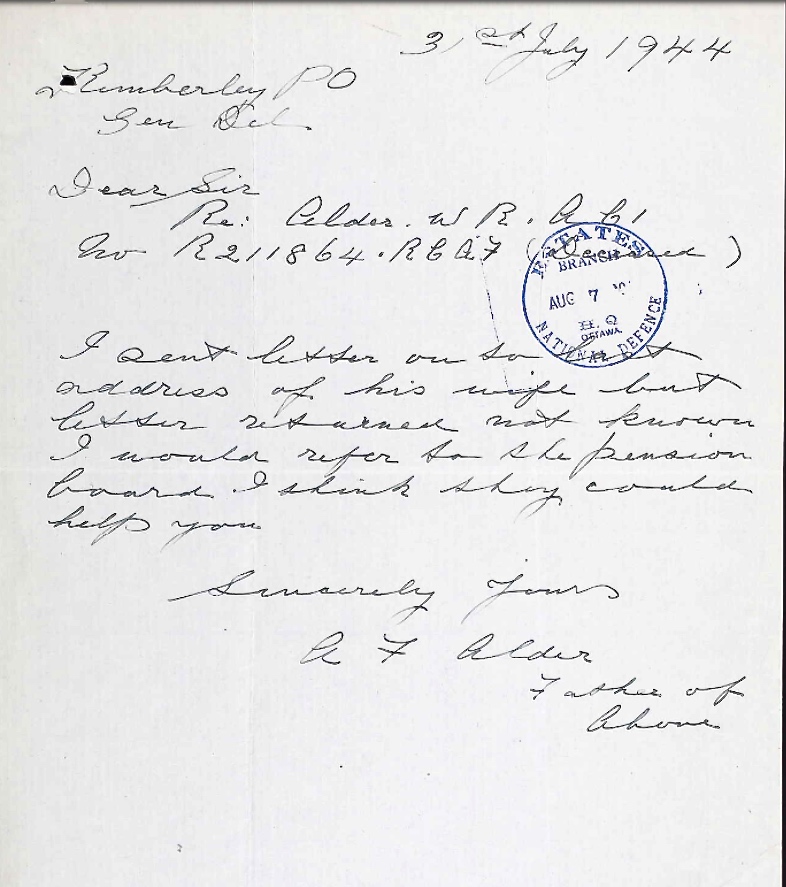 31st July 1944
Kimberley PO
Gen Del.
Dear Sir
Re: Alder. W R. A C1
No R211864. RCAF (Deceased)
ESTATES
BRANCH
AUG 7
H.Q
OTTAWA.
NATIONAL DEFENCE
I sent letter on to last
address of his wife but
letter returned not known
I would refer to the pension
board I think they could
help you
Sincerely Yours
A F Alder
Father of
Above